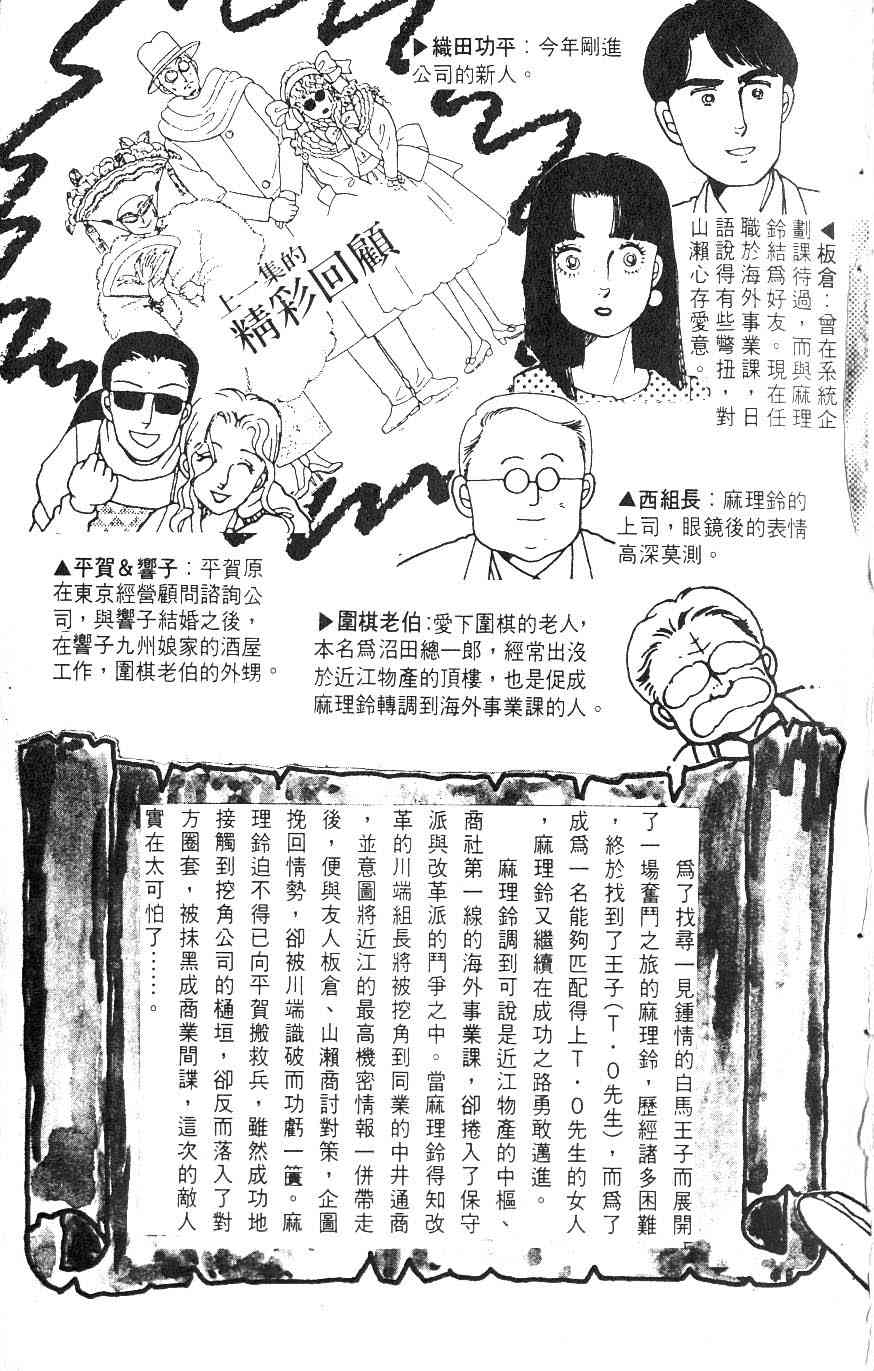 ▶織田功平：今年剛進
公司的新人。
◀板倉：曾在系統企
劃課待過，而與麻理
鈴結爲好友。現在任
職於海外事業課，日
語說得有些彆扭，對
山瀨心存愛意。
上一集的
精彩回顧
▲西組長：麻理鈴的
上司，眼鏡後的表情
高深莫測。
▲平賀＆響子：平賀原
在東京經營顧問諮詢公
司，與響子結婚之後，
在響子九州娘家的酒屋
工作，圍棋老伯的外甥。
▶圍棋老伯：愛下圍棋的老人，
本名爲沼田總一郎，經常出沒
於近江物產的頂樓，也是促成
麻理鈴轉調到海外事業課的人。
爲了找尋一見鍾情的白馬王子而展開
了一場奮鬥之旅的麻理鈴，歷經諸多困難
，終於找到了王子（T·O先生），而爲了
成爲一名能夠匹配得上T·O先生的女人
，麻理鈴又繼續在成功之路勇敢邁進。
麻理鈴調到可說是近江物產的中樞、
商社第一線的海外事業課，卻捲入了保守
派與改革派的鬥爭之中。當麻理鈴得知改
革的川端組長將被挖角到同業的中井通商
，並意圖將近江的最高機密情報一併帶走
後，便與友人板倉、山瀨商討對策，企圖
挽回情勢，卻被川端識破而功虧一簣。麻
理鈴迫不得已向平賀搬救兵，雖然成功地
接觸到挖角公司的樋垣，卻反而落入了對
方圈套，被抹黑成商業間諜，這次的敵人
實在太可怕了……。